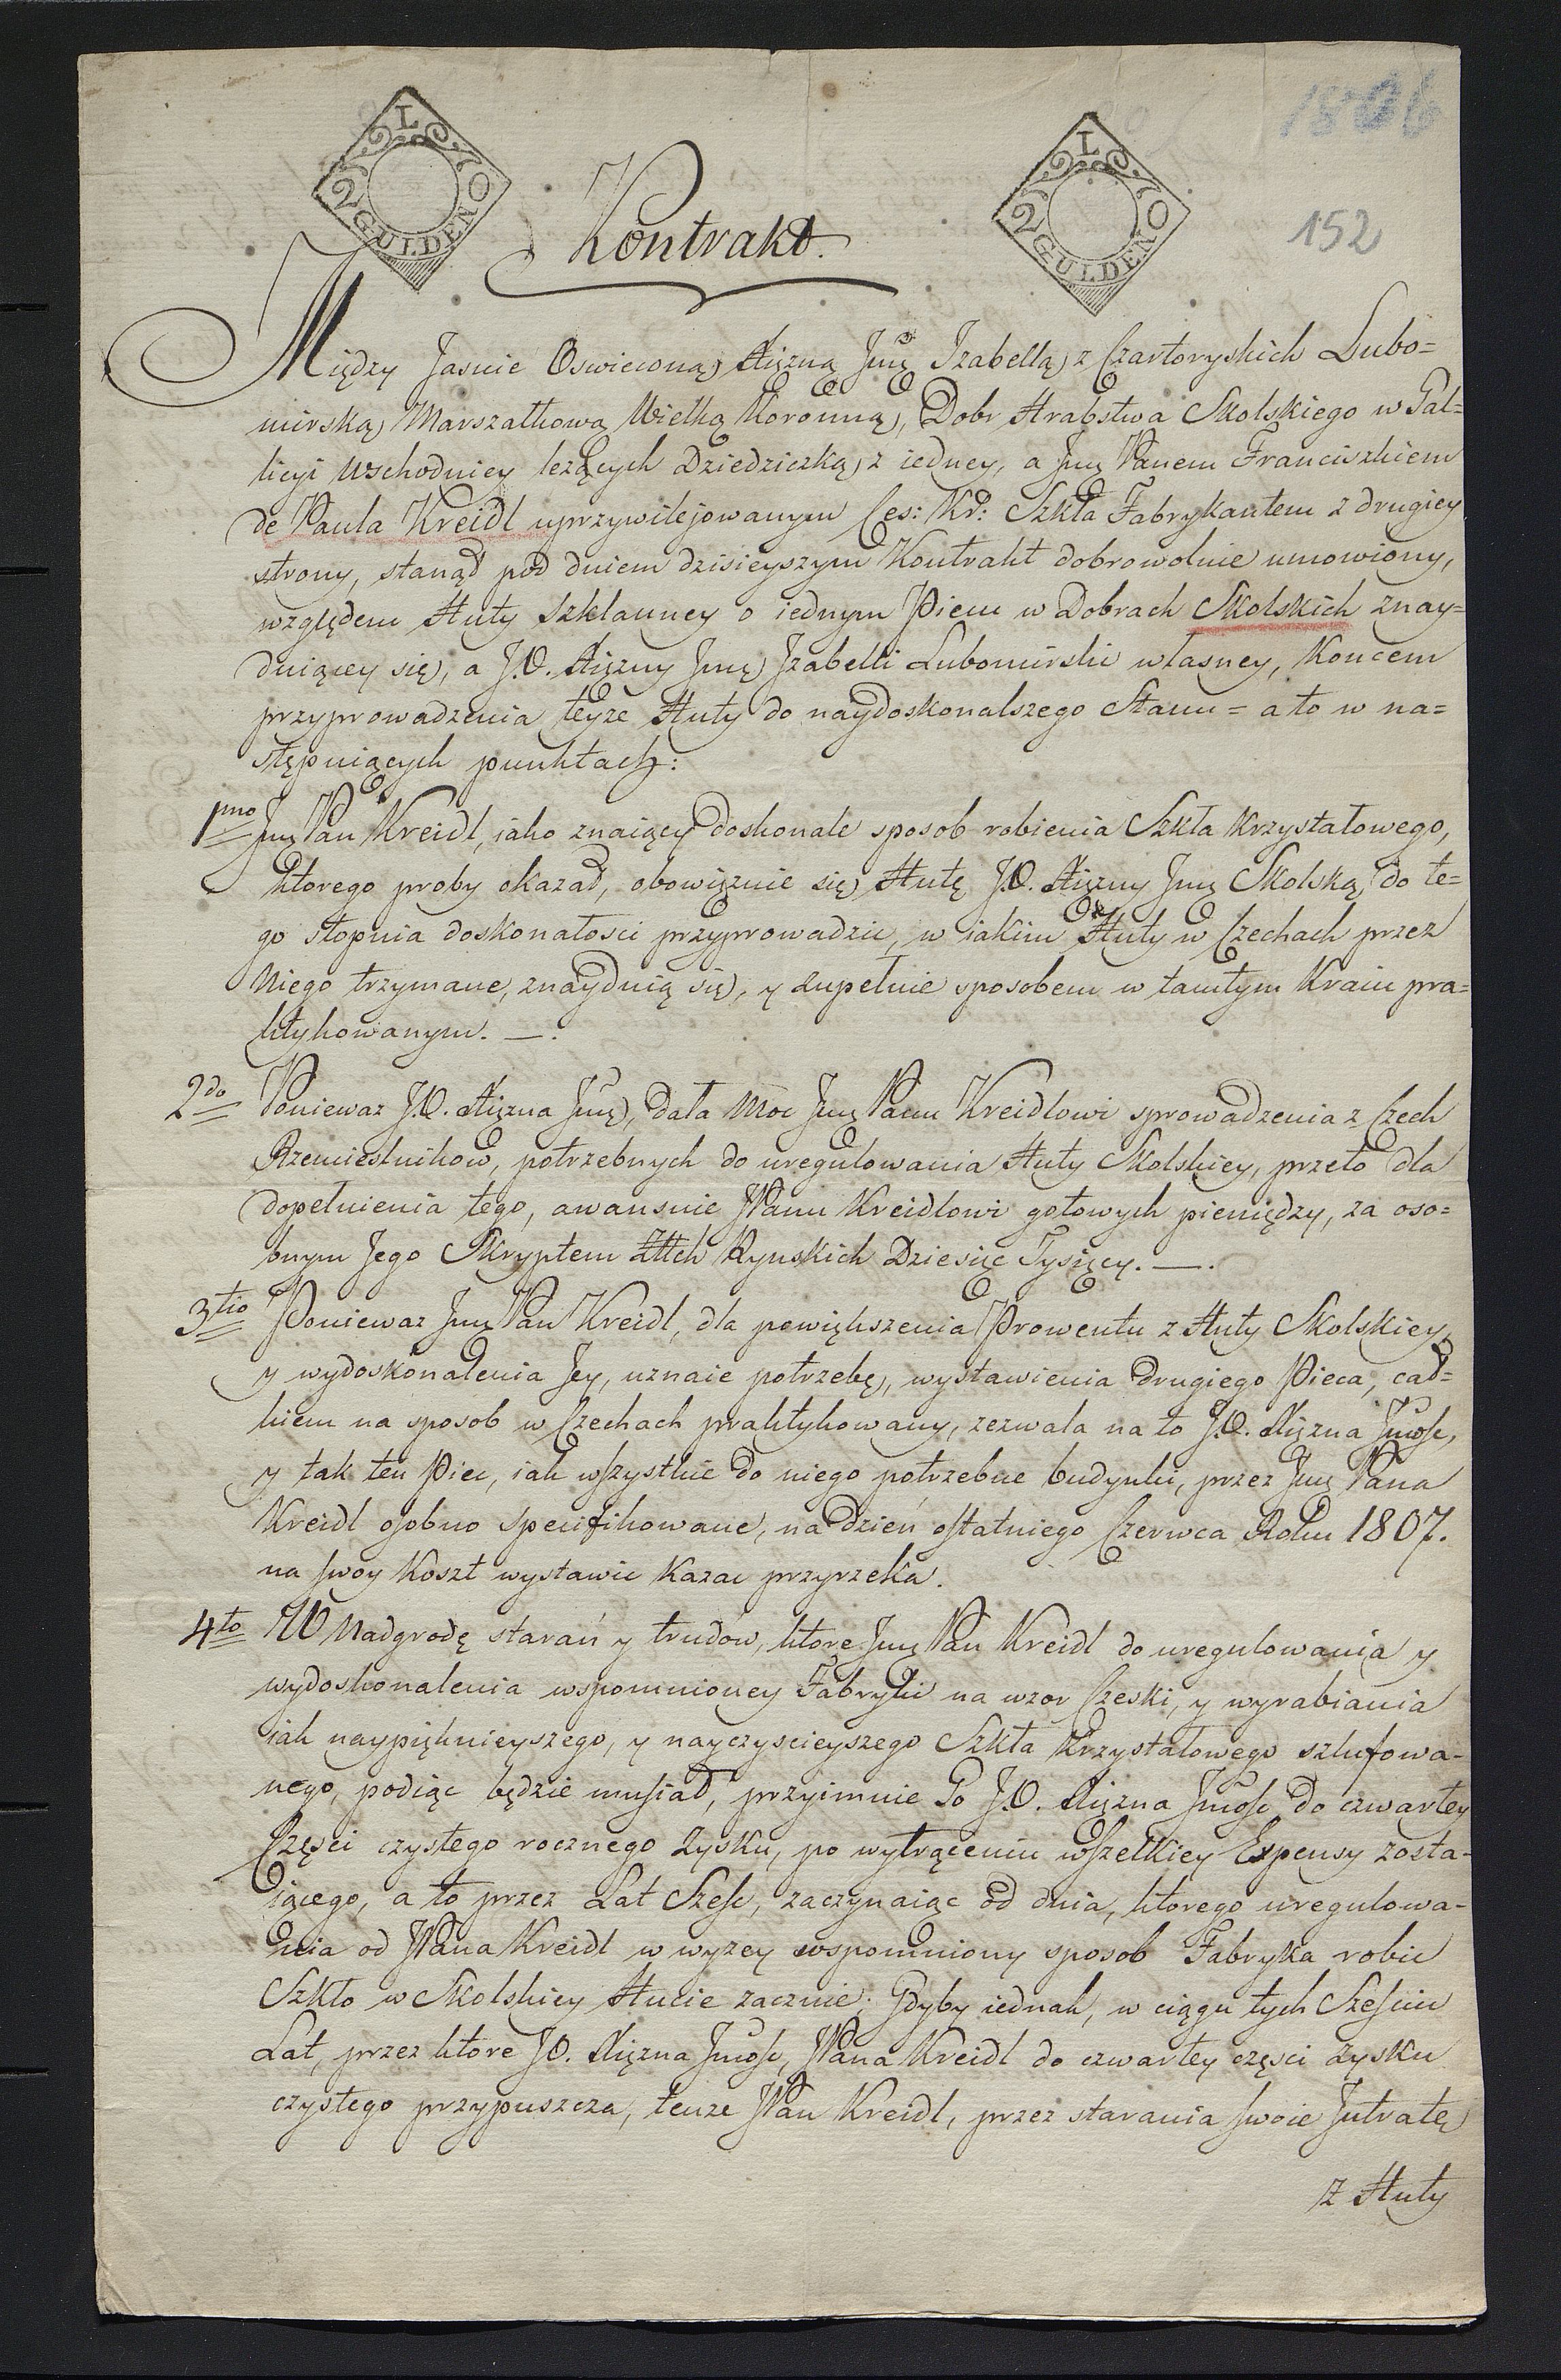 1806
L S
2 0
GULDEN
L S
2 0
GULDEN
152
Kontrakt.
Między Jasnie Oswieconą Xiężną Jmę Izabellą z Czartoryskich Lubo=
mirską Marszałkową Wielką Koronną, Dobr Hrabstwa Skolskiego w Gal=
licyi Wschodniey leżących Dziedziczką z iedney, a Jmę Panem Franciszkiem
de Paula Kreidl uprzywilejowanym Ces: Kr: Szkła Fabrykantem z drugiey
strony, stanął pod dniem dzisieyszym Kontrakt dobrowolnie umowiony,
względem Huty Szklanney o iednym Piecu w Dobrach Skolskich znay=
duiącey się, a J.O. Xiężny Jmę Izabelli Lubomirski własney, Koncem
przyprowadzenia teyże Huty do naydoskonalszego Stanu = a to w na=
stępuiących punktach:
1mo Jmę Pan Kreidl, iako znaiący doskonale sposob robienia Szkła Krzystałowego,
ktorego proby okazał, obowięznie się Hutę J.O. Xiężny Jmę Skolską do te=
go stopnia doskonałosci przyprowadzic, w iakim Huty w Czechach przez
Niego trzymane, znayduią się, y zupełnie sposobem w tamtym Kraiu pra=
ktykowanym. —.
2do Poniewaz J.O. Xiężna Jmę, dała Moc Jmę Panu Kreidlowi sprowadzenia z Czech
Rzemieslnikow, potrzebnych do uregulowania Huty Skolskiey, przeto dla
dopełnienia tego, awansuie JPanu Kreidlowi gotowych pieniędzy, za oso=
bnym Jego Skryptem Złłch Rynskich Dziesięc Tysięcy. —.
3tio Poniewaz Jmę Pan Kreidl, dla powiększenia Prowentu z Huty Skolskiey,
y wydoskonalenia Jey, uznaie potrzebę, wystawienia drugiego Pieca, cał=
kiem na sposob w Czechach praktykowany, zezwala na to J.O. Xiężna Jmośc,
y tak ten Piec, iak wszystkie do niego potrzebne budynki, przez Jmę Pana
Kreidl osobno specifikowane, na dzień ostatniego Czerwca Roku 1807.
na swoy Koszt wystawic Kazac przyrzeka.
4to W Nadgrodę starań y trudów, ktore Jmę Pan Kreidl do uregulowania y
wydoskonalenia wspomnioney Fabryki na wzor Czeski, y wyrabiania
iak naypięknieyszego, y nayczyscieyszego Szkła Krzystałowego szlufowa-
nego, podiąc będzie musiał, przyimuie Go J.O. Xiężna Jmośc do czwartey
Częsci czystego rocznego Zysku, po wytrąceniu wszelkiey Expensy zosta-
iącego, a to przez Lat Szesc, zaczynaiąc od dnia, ktorego uregulowa-
nia od JPana Kreidl w wyzey wspomniony sposob Fabryka robic
Szkło w Skolskiey Hucie zacznie; Gdyby iednak, w ciągu tych Szesciu
Lat, przez ktore JO. Xiężna Jmośc, JPana Kreidl do czwartey częsci Zysku
czystego przypuszcza, tenze JPan Kreidl, przez starania swoie Intratę
z Huty